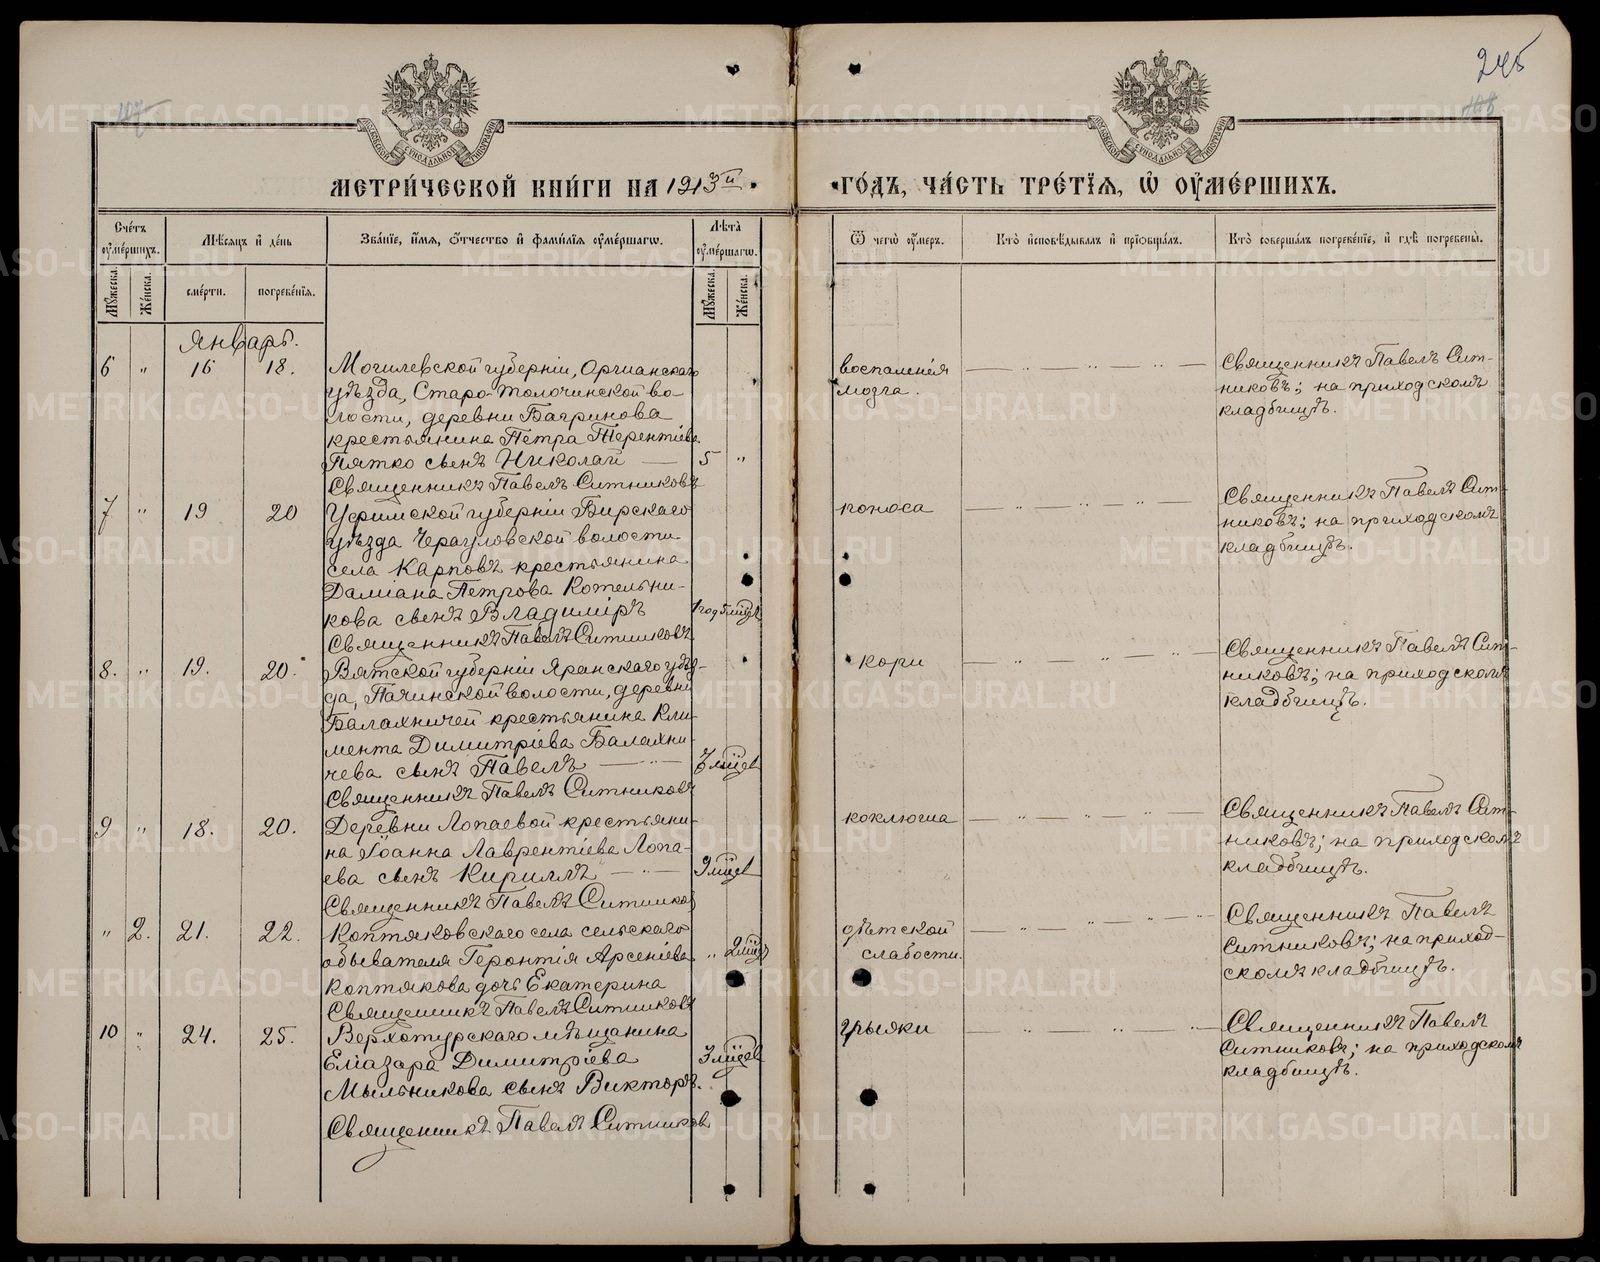 245
МЕТРИ́ЧЕСКОЙ КНИ́ГИ НА 1913й
ГО́ДЪ, ЧА́СТЬ ТРЕ́ТІЯ, Ѡ ОУМЕ́РШИХЪ.
Сче́тъ оумершихъ.
Мѣсяцъ и де́нь
Зва́ніе, и́мя, о́тчество и фами́лія оуме́ршагѡ.
Лѣта оуме́ршагѡ.
Ѿ чегѡ̀ оу́меръ.
Кто̀ исповѣ́дывалъ и пріобща́лъ.
Кто̀ соверша́лъ погребе́ніе, и гдѣ̀ погребены̀.
Му́жеска.
Же́нска.
сме́рти.
погребе́нія.
Му́жеска.
Же́нска.
Январь.
6 " 16 18. Могилевской губерніи, Оршанскаго
уѣзда, Старо-Толочинской во-
лости, деревни Багринова
крестьянина Петра Терентіева
Пятко сынъ Николай — 5 "
Священникъ Павелъ Ситниковъ
воспаленія
мозга.
Священникъ Павелъ Сит-
никовъ; на приходскомъ
кладбищѣ.
7 " 19 20 Уфимской губерніи Бирскаго
уѣзда Черауловской волости
села Карповъ крестьянина
Даміана Петрова Котельни-
кова сынъ Владиміръ 1 год 5 мцвъ
Священникъ Павелъ Ситниковъ
поноса
Священникъ Павелъ Сит-
никовъ; на приходскомъ
кладбищѣ.
8. " 19. 20. Вятской губерніи Яранскаго уѣз-
да, Пачинской волости, деревни
Балахничей крестьянина Кли-
мента Димитріева Балахни-
чева сынъ Павелъ — " — 7 мцев
Священникъ Павелъ Ситниковъ
кори
Священникъ Павелъ Сит-
никовъ; на приходскомъ
кладбищѣ.
9 " 18. 20. Деревни Лопаевой крестьяни-
на Іоанна Лаврентіева Лопа-
ева сынъ Кириллъ — " — 9 мцев
Священникъ Павелъ Ситников
коклюша
Священникъ Павелъ Сит-
никовъ; на приходскомъ
кладбищѣ.
" 2. 21. 22. Коптяковскаго села сельскаго
обывателя Геронтія Арсеніева " 2 мцъ
Коптякова дочь Екатерина
Священникъ Павелъ Ситниковъ
дѣтской
слабости.
Священникъ Павелъ
Ситниковъ; на приход-
скомъ кладбищѣ.
10 " 24. 25. Верхотурскаго мѣщанина
Еліазара Димитріева 3 мцев
Мыльникова сынъ Викторъ.
Священникъ Павелъ Ситников
грыжи
Священникъ Павелъ
Ситниковъ; на приходскомъ
кладбищѣ.
METRIKI.GASO-URAL.RU